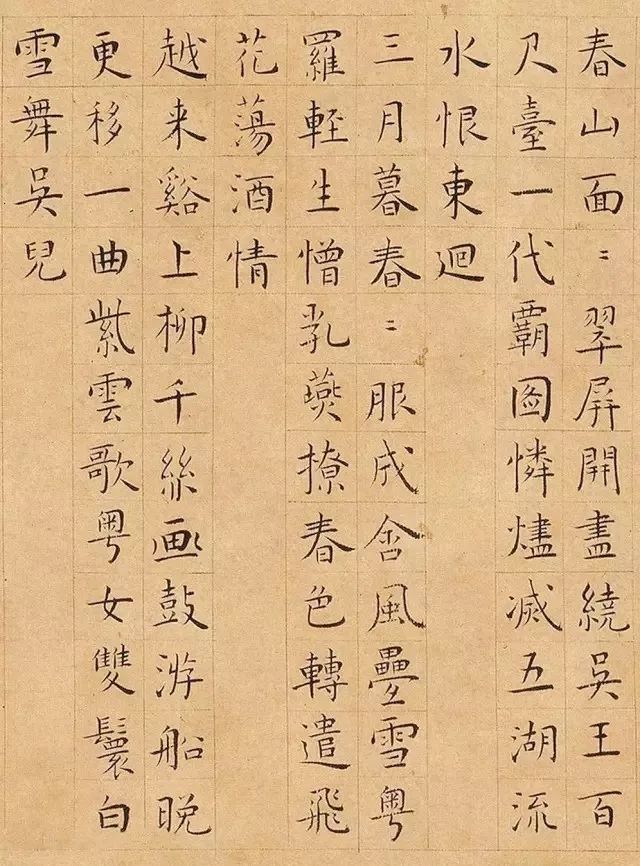 春山面〻翠屏開盡繞吳王百
尺臺一代覇圖憐燼滅五湖流
水恨東迴
三月暮春〻服成含風疊雪粤
羅輕生憎乳燕撩春色轉遣飛
花蕩酒情
越来谿上柳千絲画鼓游船晚
更移一曲紫雲歌粤女雙鬟白
雪舞吳兒